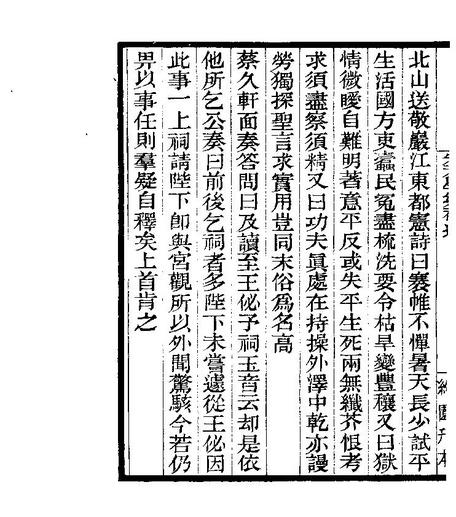 北山送敬巖江東都憲詩曰褰帷不憚暑天長少試平
生活國方吏蠹民冤盡梳洗要令枯旱變豐穰又曰獄
情微曖自難明著意平反或失平生死兩無纖芥恨考
求須盡察須精又曰功夫眞處在持操外澤中乾亦謾
勞獨探聖言求實用豈同末俗爲名高
蔡久軒面奏答問曰及讀至王佖予祠玉音云却是依
他所乞公奏曰前後乞祠者多陛下未嘗遽從王佖因
此事一上祠請陛下卽與宮觀所以外聞驚駭今若仍
畀以事任則羣疑自釋矣上首肯之